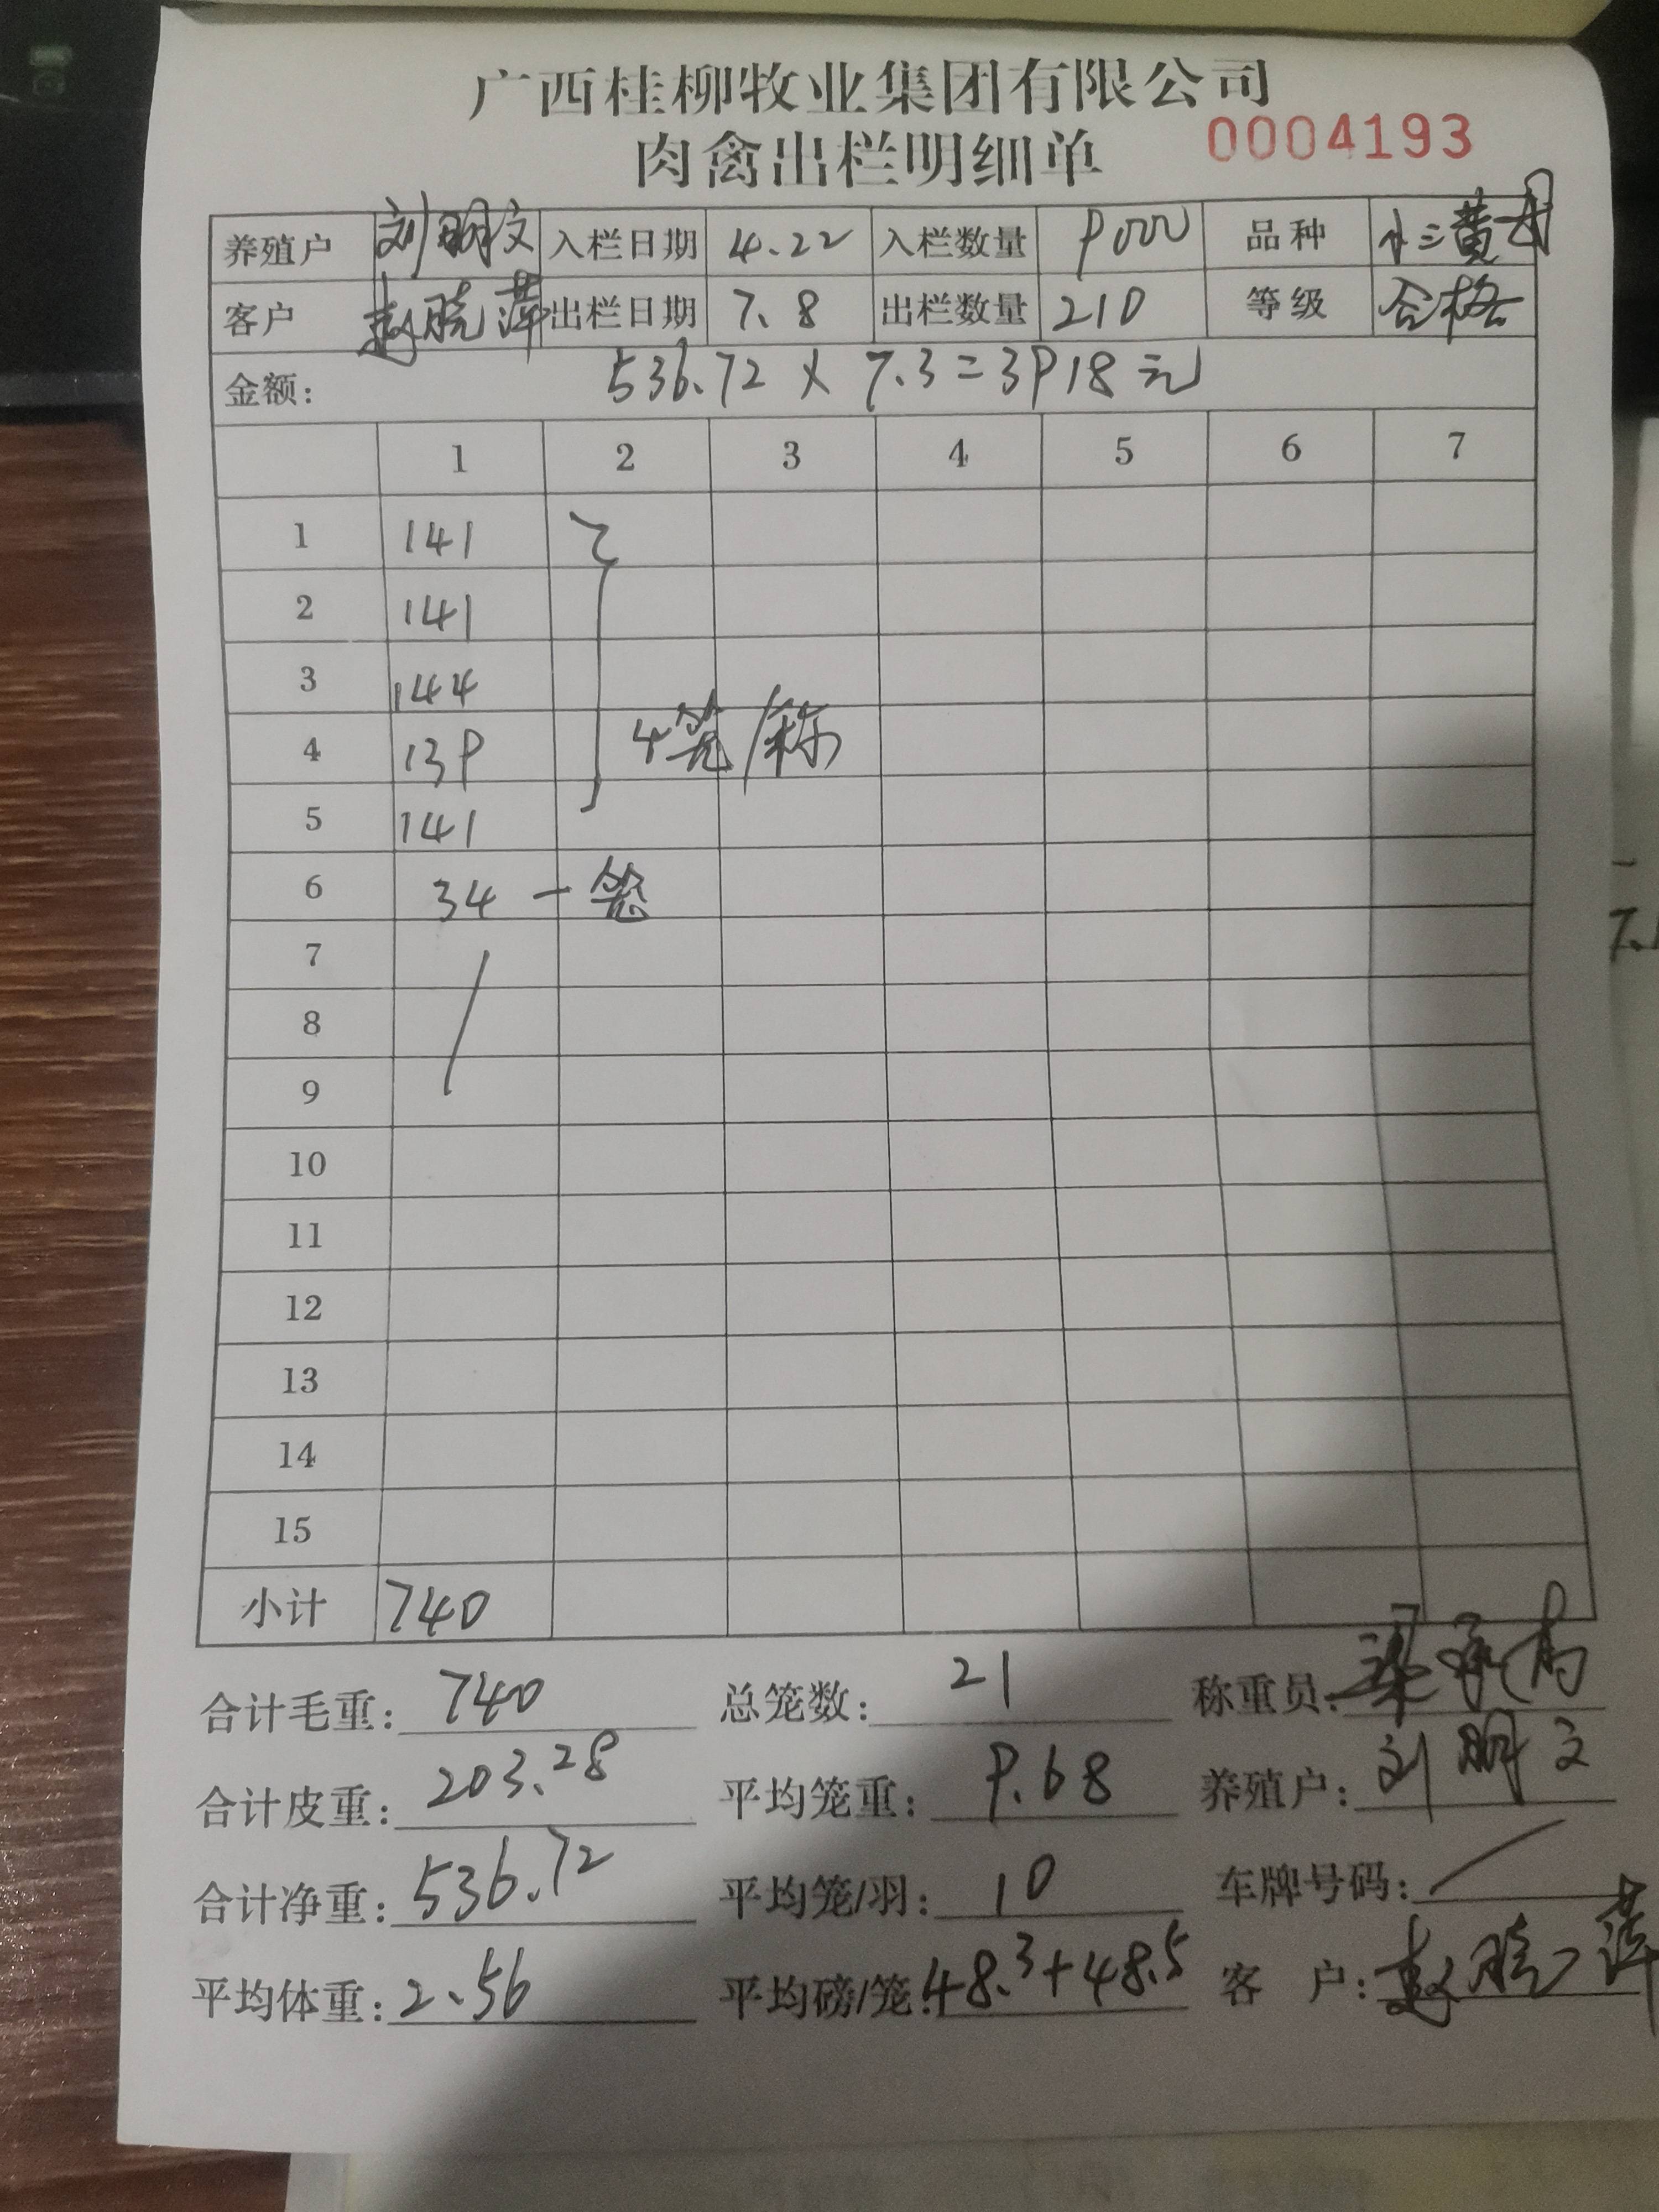 广西桂柳牧业集团有限公司
肉禽出栏明细单 0004193
养殖户 刘明文 入栏日期 4.22 入栏数量 9000 品种 小三黄母
客户 赵晓萍 出栏日期 7.8 出栏数量 210 等级 合格
金额: 536.72 × 7.3=3918元
1 2 3 4 5 6 7
1 141
2 141
3 144
4 139 4笼/称
5 141
6 34 一笼
7
8
9
10
11
12
13
14
15
小计 740
合计毛重: 740 总笼数: 21 称重员: 梁
合计皮重: 203.28 平均笼重: 9.68 养殖户: 刘明文
合计净重: 536.72 平均笼/羽: 10 车牌号码: /
平均体重: 2.56 平均磅/笼: 48.3+48.5 客 户: 赵晓萍
7.